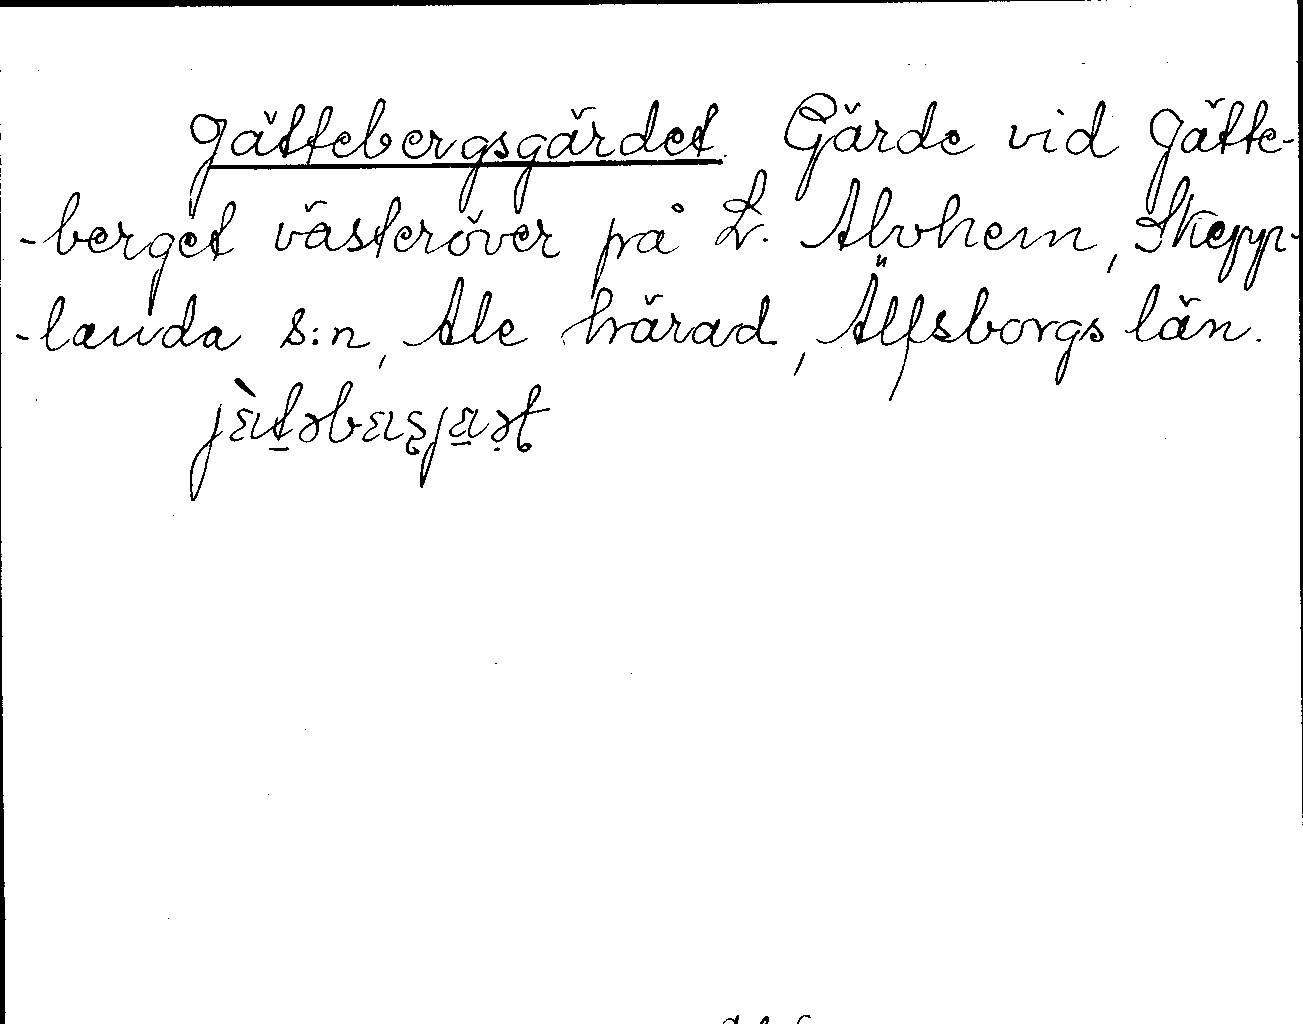 Jättebergsgärdet. Gärde vid Jätte-
-berget västeröver på L. Alvhem, Skepp-
-landa s:n, Ale härad, Älfsborgs län.